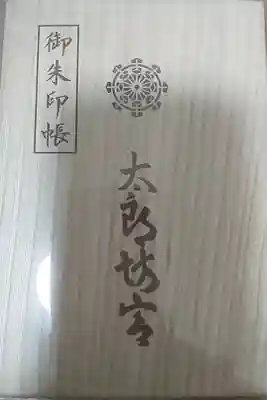 御朱印帳
太郎坊宮